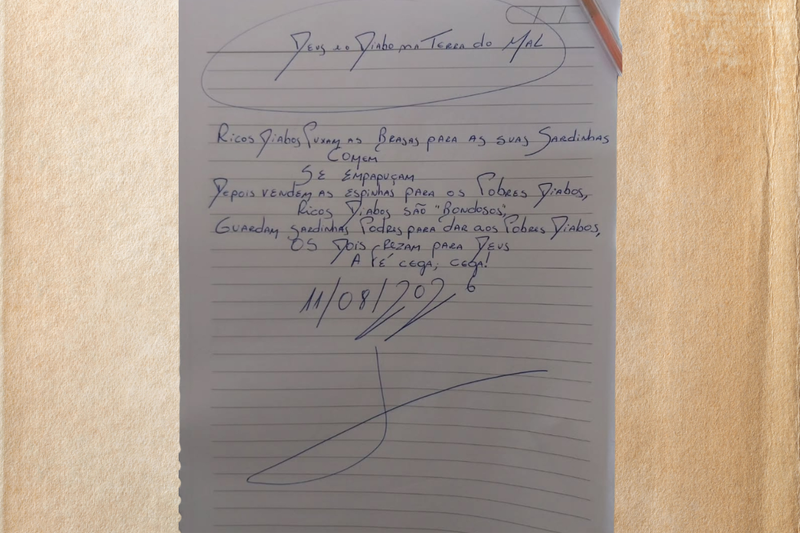 Deus e o Diabo na Terra do Mal
Ricos Diabos Puxam as Brasas para as suas Sardinhas
Comem
Se empapuçam
Depois vendem as espinhas para os Pobres Diabos,
Ricos Diabos são "Bondosos",
Guardam Sardinhas Podres para dar aos Pobres Diabos,
Os Dois rezam para Deus
A Fé cega, cega!
11/08/2026